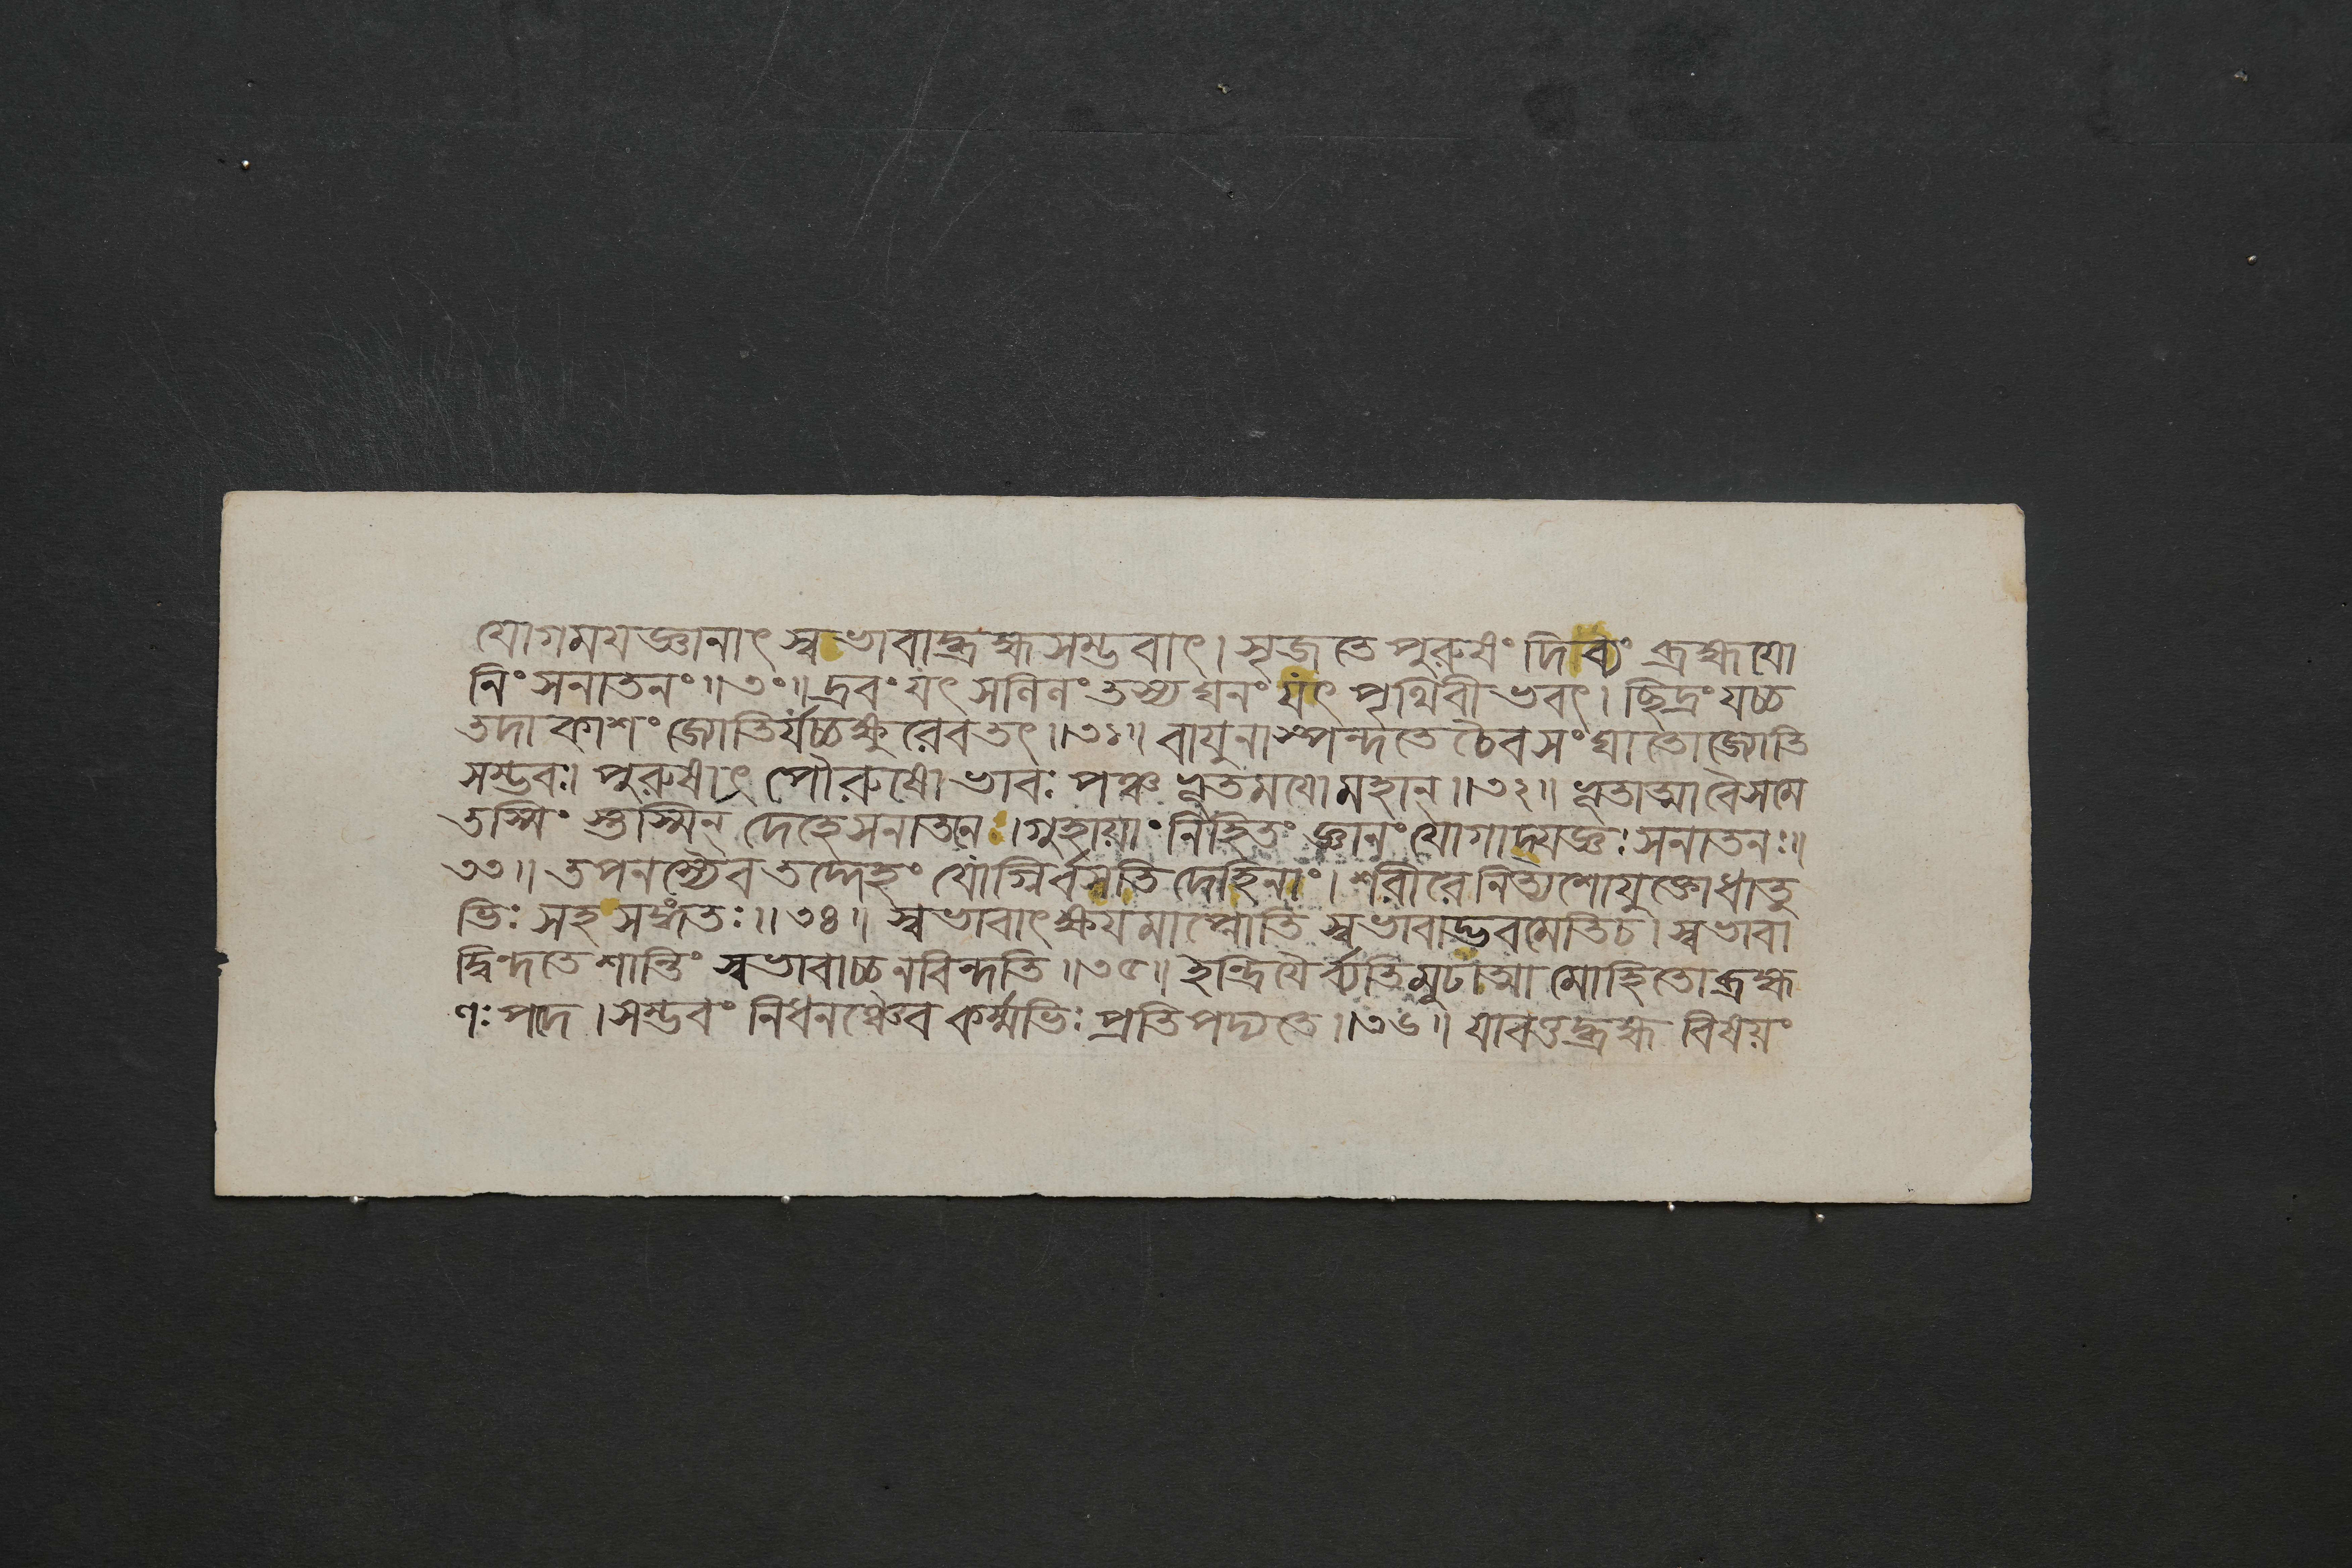 যোগময়জ্ঞানাৎ স্বভাবাদ্ব্রহ্মসম্ভবাৎ। সৃজতে পুরুষং দিব্যং ব্রহ্মযো
নিং সনাতনং॥৩০॥ দ্রবং যৎ সলিলং তস্য ঘনং যৎ পৃথিবী ভবৎ। ছিদ্রং যচ্চ
তদাকাশং জ্যোতির্যচ্চক্ষুরেবতৎ॥৩১॥ বায়ুনাস্পন্দতে চৈবসংঘাতোজ্যোতি
সম্ভবঃ। পুরুষাৎ পৌরুষো ভাবঃ পঞ্চভূতময়ো মহান্॥৩২॥ ভূতাত্মাবৈসমে
তস্মিং স্তস্মিন্ দেহেসনাতনঃ। গুহায়াং নিহিতং জ্ঞানং যোগাদ্যজ্ঞঃ সনাতনঃ॥
৩৩॥ তপনস্যৈব তদ্দেহং যোগ্নির্বসতি দেহিনাং। শরীরে নিত্যশোযুক্তোধাতু
ভিঃ সহ সঙ্গতঃ॥৩৪॥ স্বভাবাৎ ক্ষয়মাপ্নোতি স্বভাবাদ্ভবমেতিচ। স্বভাবা
দ্বিন্দতে শান্তিং স্বভাবাচ্চনবিন্দতি॥৩৫॥ ইন্দ্রিয়ৈর্ব্যতিমূঢাত্মা মোহিতোব্রহ্ম
ণঃ পদে। সম্ভবং নিধনঞ্চৈব কর্ম্মভিঃ প্রতিপদ্যতে॥৩৬॥ যাবত্তদ্ব্রহ্ম বিষয়ং